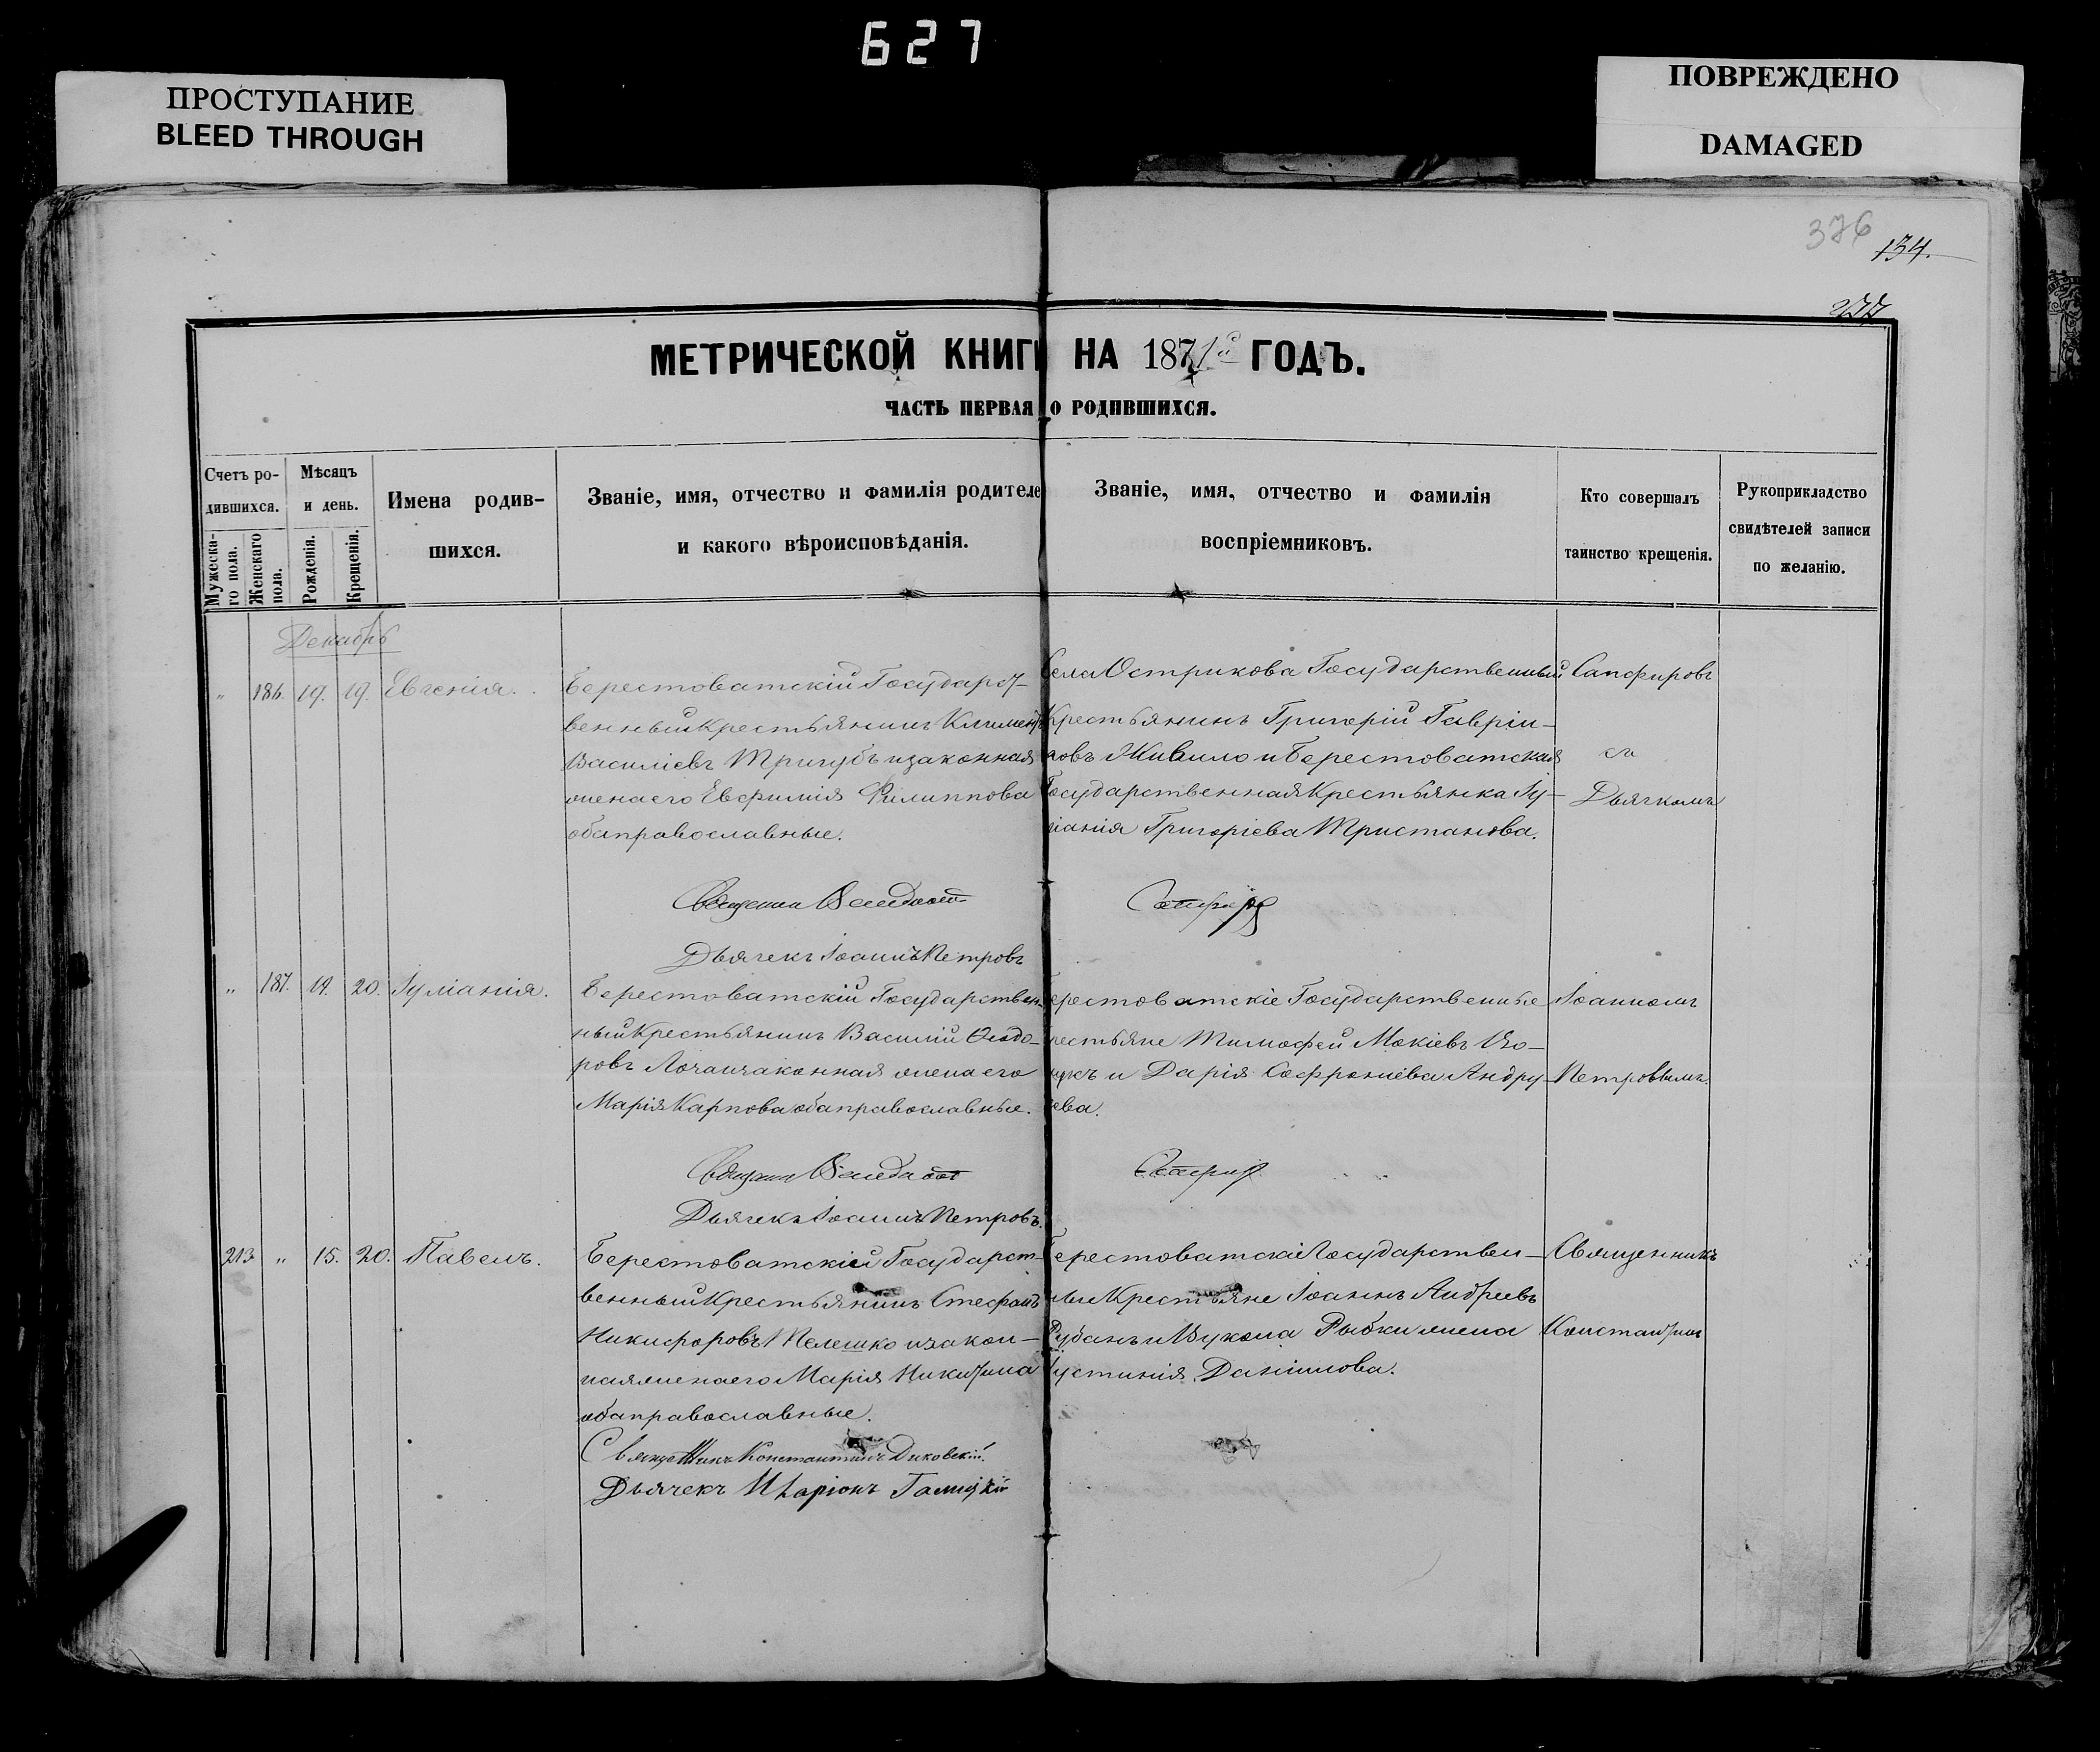 627
ПРОСТУПАНИЕ
BLEED THROUGH
ПОВРЕЖДЕНО
DAMAGED
376
134.
277
МЕТРИЧЕСКОЙ КНИГИ НА 1871й ГОДЪ.
ЧАСТЬ ПЕРВАЯ О РОДИВШИХСЯ.
Счетъ ро-
дившихся.
Мужеска-
го пола.
Женскаго
пола.
Мѣсяцъ
и день.
Рожденія.
Крещенія.
Имена родив-
шихся.
Званіе, имя, отчество и фамилія родителе
и какого вѣроисповѣданія.
Званіе, имя, отчество и фамилія
воспріемниковъ.
Кто совершалъ
таинство крещенія.
Рукоприкладство
свидѣтелей записи
по желанію.
Декабрь
„ 186. 19. 19. Евгенія.
Берестоватскій Государст-
венный Крестьянинъ Климентъ
Василіевъ Тригубъ и законная
жена его Евфимія Филиппова
оба православные.
Села Острикова Государственный
Крестьянинъ Григорій Гавріи-
ловъ Живило и Берестоватская
Государственная Крестьянка Іу-
ліанія Григоріева Тристанова.
Сапфировъ
съ
Дьячкомъ
Дьячекъ Іоаннъ Петровъ
„ 187. 19. 20. Іуліанія.
Берестоватскій Государствен-
ный Крестьянинъ Василій Ѳеодо-
ровъ Лоча и законная жена его
Марія Карпова оба православные.
ерестоватскіе Государственные
рестьяне Тимофей Мокіевъ
и Дарія Софроніева Андру-
ева.
Іоанномъ
Петровымъ.
Дьячекъ Іоаннъ Петровъ.
213 „ 15. 20. Павелъ.
Берестоватскій Государст-
венный Крестьянинъ Стефанъ
Никифоровъ Пелешко и закон-
ная жена его Марія Никитина
оба православные.
Берестоватскіе Государствен-
ные Крестьяне Іоаннъ Андреевъ
Рубанъ и Вукола Рыбки жена
Іустинія Даніилова.
Священникъ
Константинъ
Священникъ Константинъ Диковскій.
Дьячекъ Иларіонъ Галицкій